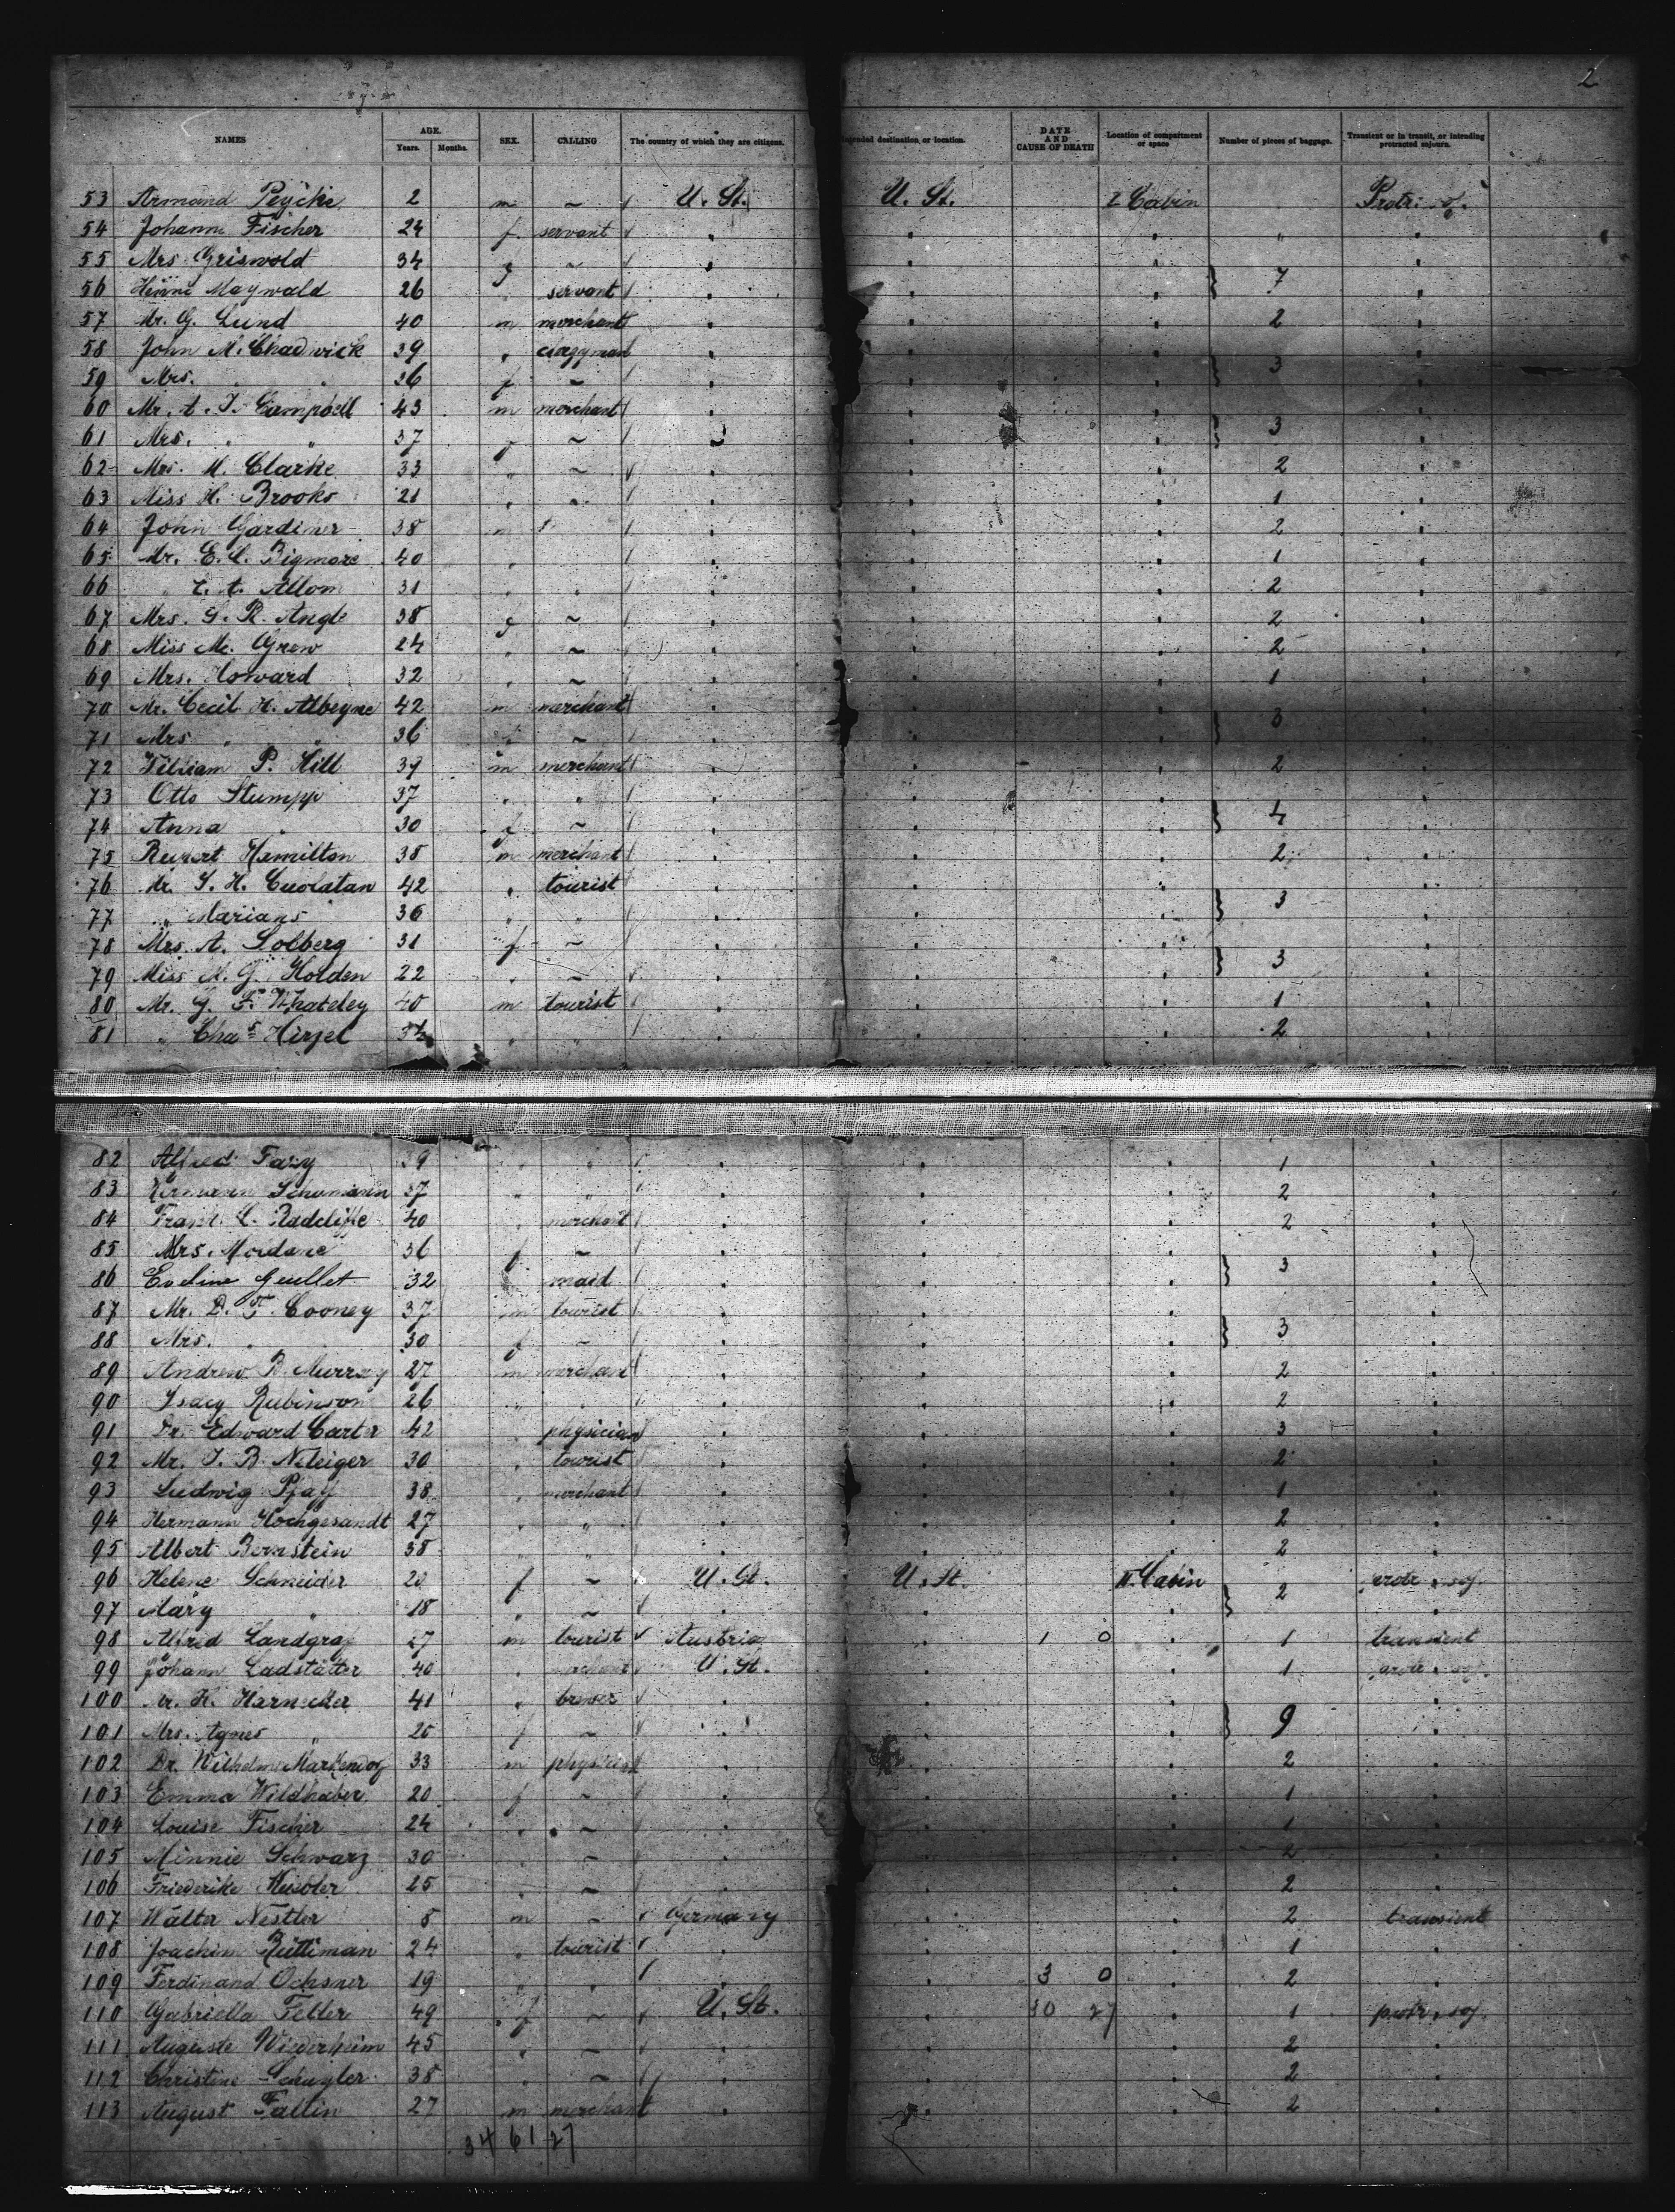 2
NAMES AGE. Years. Months. SEX. CALLING The country of which they are citizens. Intended destination or location. DATE AND CAUSE OF DEATH Location of compartment or space Number of pieces of baggage. Transient or in transit, or intending protracted sojourn.
53 Armand 2 m ~ U. St. U. St. Cabin Protr. soj.
54 Johann Fischer 24 f. servant " " " " "
55 Mrs. Griswold 34 f ~ " " " "
56 Maywald 26 " servant " " " } 7 "
57 Mr. G. Lund 40 m merchant " " " 2 "
58 John M. Chadwick 39 " clergyman " " " "
59 Mrs. " " 36 f ~ " " " } 3 "
60 Mr. A. J. Campbell 43 m merchant " " " "
61 Mrs. " " 37 f ~ " " " } 3 "
62 Mrs. M. Clarke 33 " ~ " " " 2 "
63 Miss H. Brooks 21 " ~ " " " 1 "
64 John Gardiner 38 m " " " " 2 "
65 Mr. E. C. Bigmore 40 " " " " 1 "
66 " E. A. Allom 31 " " " " " 2 "
67 Mrs. G. R. Angle 38 f ~ " " " 2 "
68 Miss Mc. Grew 24 " ~ " " " 2 "
69 Mrs. Howard 32 " ~ " " " 1 "
70 Mr. Cecil H. Albeyne 42 m merchant " " " "
71 Mrs " " 36 f ~ " " " } 8 "
72 William P. Hill 39 m merchant " " " 2 "
73 Otto Stumpp 37 " " " " " "
74 Anna " 30 f ~ " " " } 4 "
75 Hamilton 38 m merchant " " " 2 "
76 Mr. 42 " tourist " " " "
77 " Marians 36 " " " " " } 3 "
78 Mrs. A. Solberg 31 f ~ " " " "
79 Miss N. G. Holden 22 " ~ " " " } 3 "
80 Mr. G. F. Whateley 40 m tourist " " " 1 "
81 " Chas Hirzel " " " " " 2 "
82 Alfred 39 " " " " " 1 "
83 Hermann Schumann 37 " " " " " 2 "
84 Frank L. Radcliffe 40 " merchant " " " 2 "
85 Mrs. 36 f ~ " " " "
86 Eveline Guillet 32 " maid " " " } 3 "
87 Mr. D. F. Cooney 37 m tourist " " " "
88 Mrs. " " 30 f ~ " " " } 3 "
89 Andrew B. Murray 27 m merchant " " " 2 "
90 Isacy Rubinson 26 " " " " " 2 "
91 Dr. Edward Carter 42 " physician " " " 3 "
92 Mr. J. B. 30 " tourist " " " 2 "
93 Ludwig Pfaff 38 " merchant " " " 1 "
94 Hermann Hochgesandt 27 " " " " " 2 "
95 Albert Bernstein 38 " " " " " 2 "
96 Helene Schneider 20 f ~ U. St. U. St. II. Cabin protr. soj.
97 Mary " 18 " ~ " " " } 2 "
98 Alfred Landgraf 27 m tourist Austria " 1 0 " 1 transient
99 Johann Ladstätter 40 " merchant U. St. " " 1 protr. soj.
100 Mr. H. 41 " brewer " " " "
101 Mrs. Agnes " 25 f ~ " " " } 9 "
102 Dr. Wilhelm 33 m physician " " " 2 "
103 Emma Wildhaber 20 f ~ " " " 1 "
104 Louise Fischer 24 " ~ " " " 1 "
105 Minnie Schwarz 30 " ~ " " " 2 "
106 Friederike 25 " ~ " " " 2 "
107 Walter Nestler 8 m ~ Germany " " 2 transient
108 Joachim Rüttiman 24 " tourist " " " 1 "
109 Ferdinand Ochsner 19 " " " " 3 0 " 2 "
110 Gabriella Feller 49 f ~ U. St. " 30 27 " 1 protr. soj.
111 Auguste Wiederheim 45 " ~ " " " 2 "
112 Christine Schuyler 38 " ~ " " " 2 "
113 August Fallin 27 m merchant " " " 2 "
34 61 27